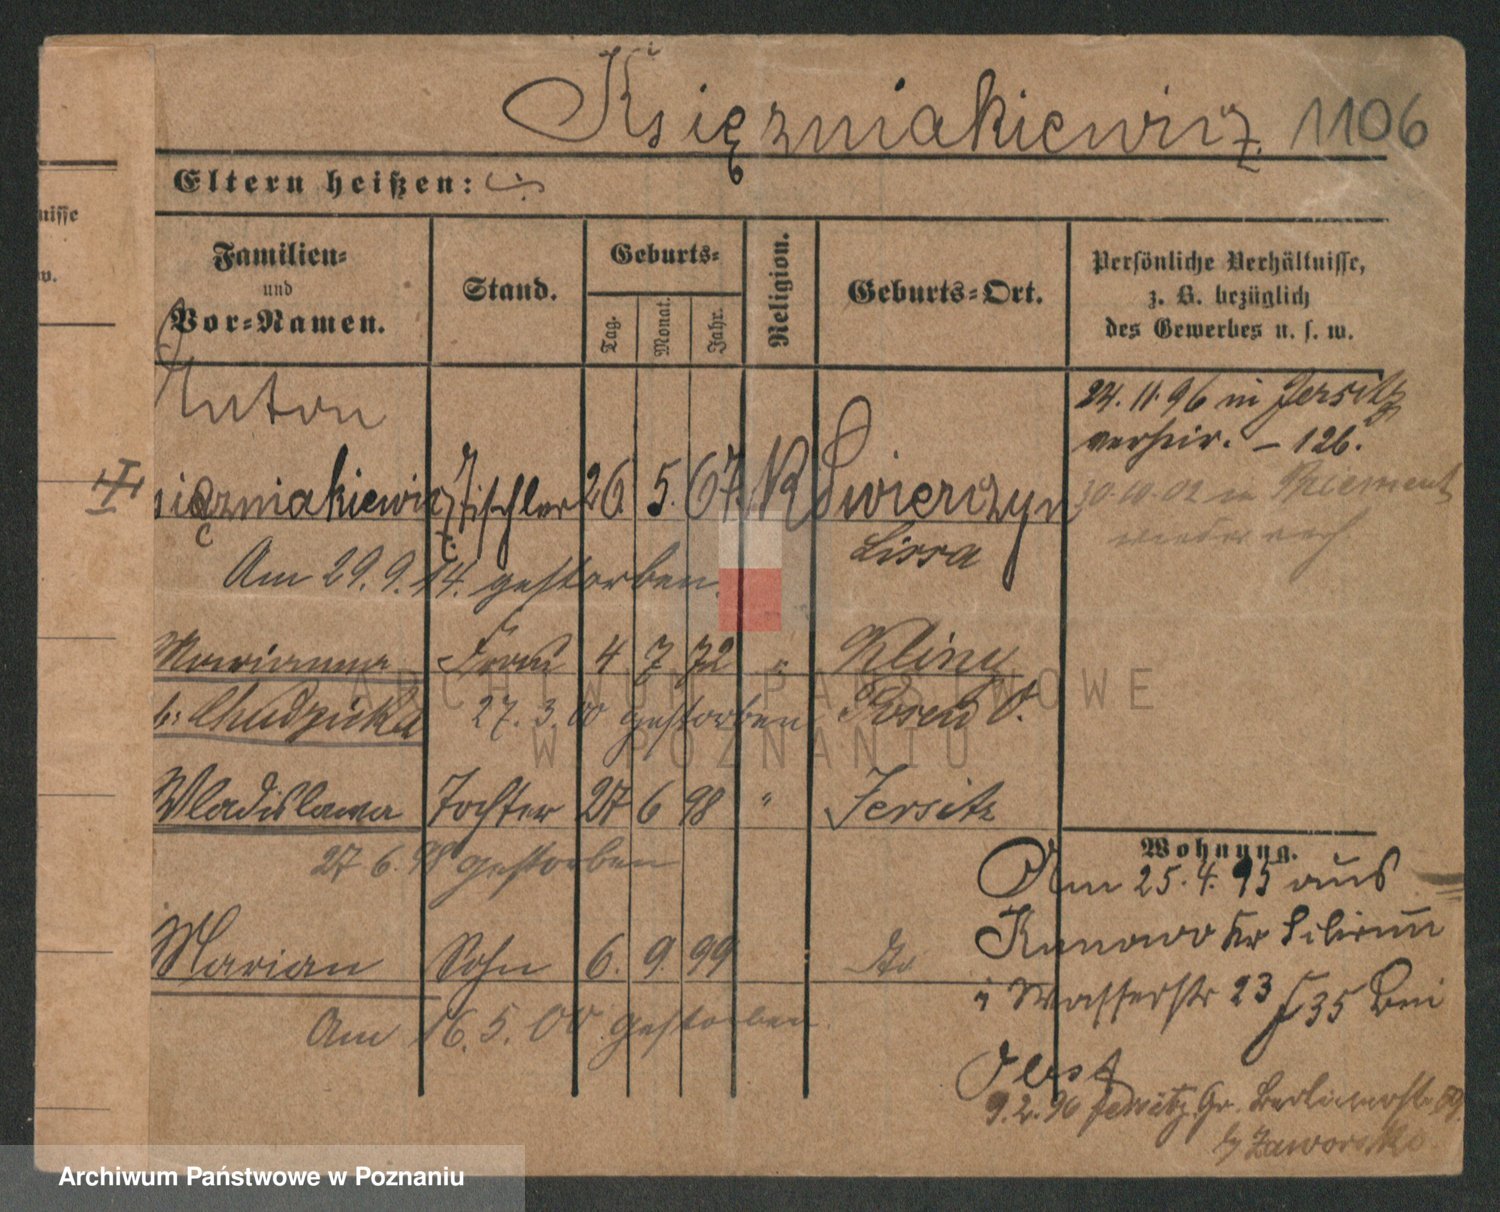 Księżniakiewicz. 1106
Eltern heißen:
nisse
w.
Familien-
und
Vor-Namen.
Stand.
Geburts-
Tag.
Monat.
Jahr.
Religion.
Geburts-Ort.
Persönliche Verhältnisse,
z. B. bezüglich
des Gewerbes u. s. w.
Anton
siężniakiewicz Tischler 26. 5. 67. K Swierczyn
Lissa
Am 29. 9. 14. gestorben.
24. 11. 96 in Jersitz
verheir. – 126.
30.10.02 in
wieder verh.
Marianna Frau 4 7 72 "
b: Chudzicka 27. 3. 00 gestorben Posen O.
Wladislawa Tochter 27 6 98 " Jersitz
27 6. 98 gestorben
Marian Sohn 6. 9. 99 do
Am 16. 5. 00. gestorben.
Wohnung.
Am 25. 4. 95 aus
Kunowo Kr
i Wasserstr 23 35 bei
Obst
9. 2. 96 Jersitz, Gr. Berlinerstr.
b/ Zaworski
ARCHIWUM PAŃSTWOWE
W POZNANIU
Archiwum Państwowe w Poznaniu